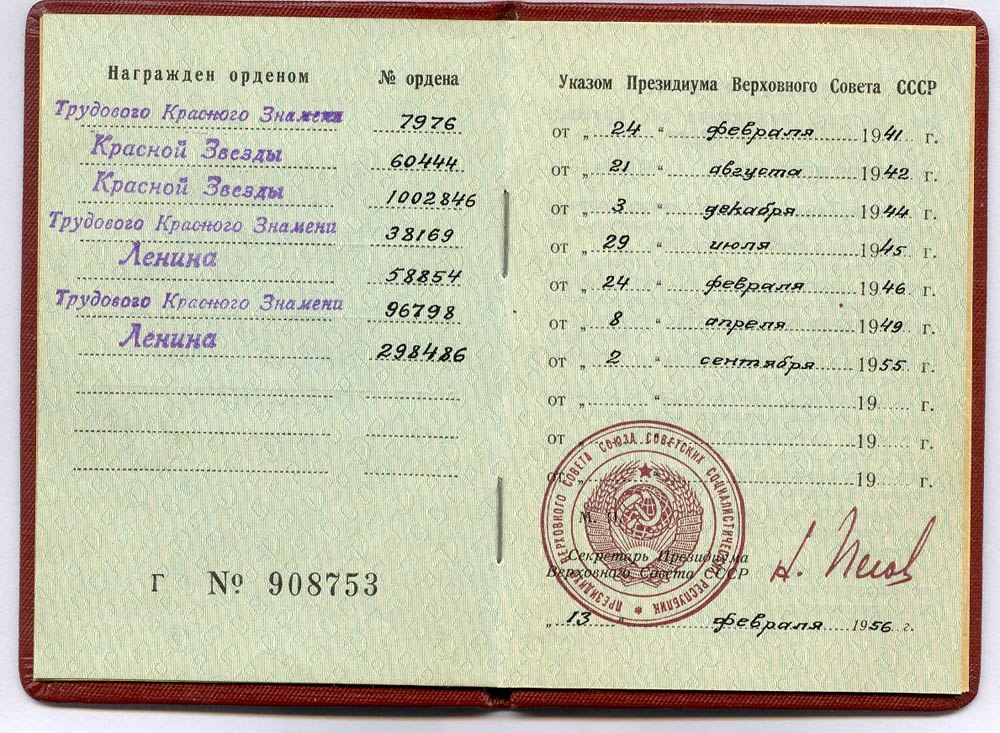 Награжден орденом
№ ордена
Трудового Красного Знамени 7976
Красной Звезды 60444
Красной Звезды 1002846
Трудового Красного Знамени 38169
Ленина 58854
Трудового Красного Знамени 96798
Ленина 298486
Г № 908753
Указом Президиума Верховного Совета СССР
от „ 24 “ февраля 1941 г.
от „ 21 “ августа 1942 г.
от „ 3 “ декабря 1944 г.
от „ 29 “ июля 1945 г.
от „ 24 “ февраля 1946 г.
от „ 8 “ апреля 1949 г.
от „ 2 “ сентября 1955 г.
от „ “ 19 г.
от „ “ 19 г.
от „ “ 19 г.
ПРЕЗИДИУМ ВЕРХОВНОГО СОВЕТА СОЮЗА СОВЕТСКИХ СОЦИАЛИСТИЧЕСКИХ РЕСПУБЛИК
М. П.
Секретарь Президиума
Верховного Совета СССР
„ 13 “ февраля 1956 г.